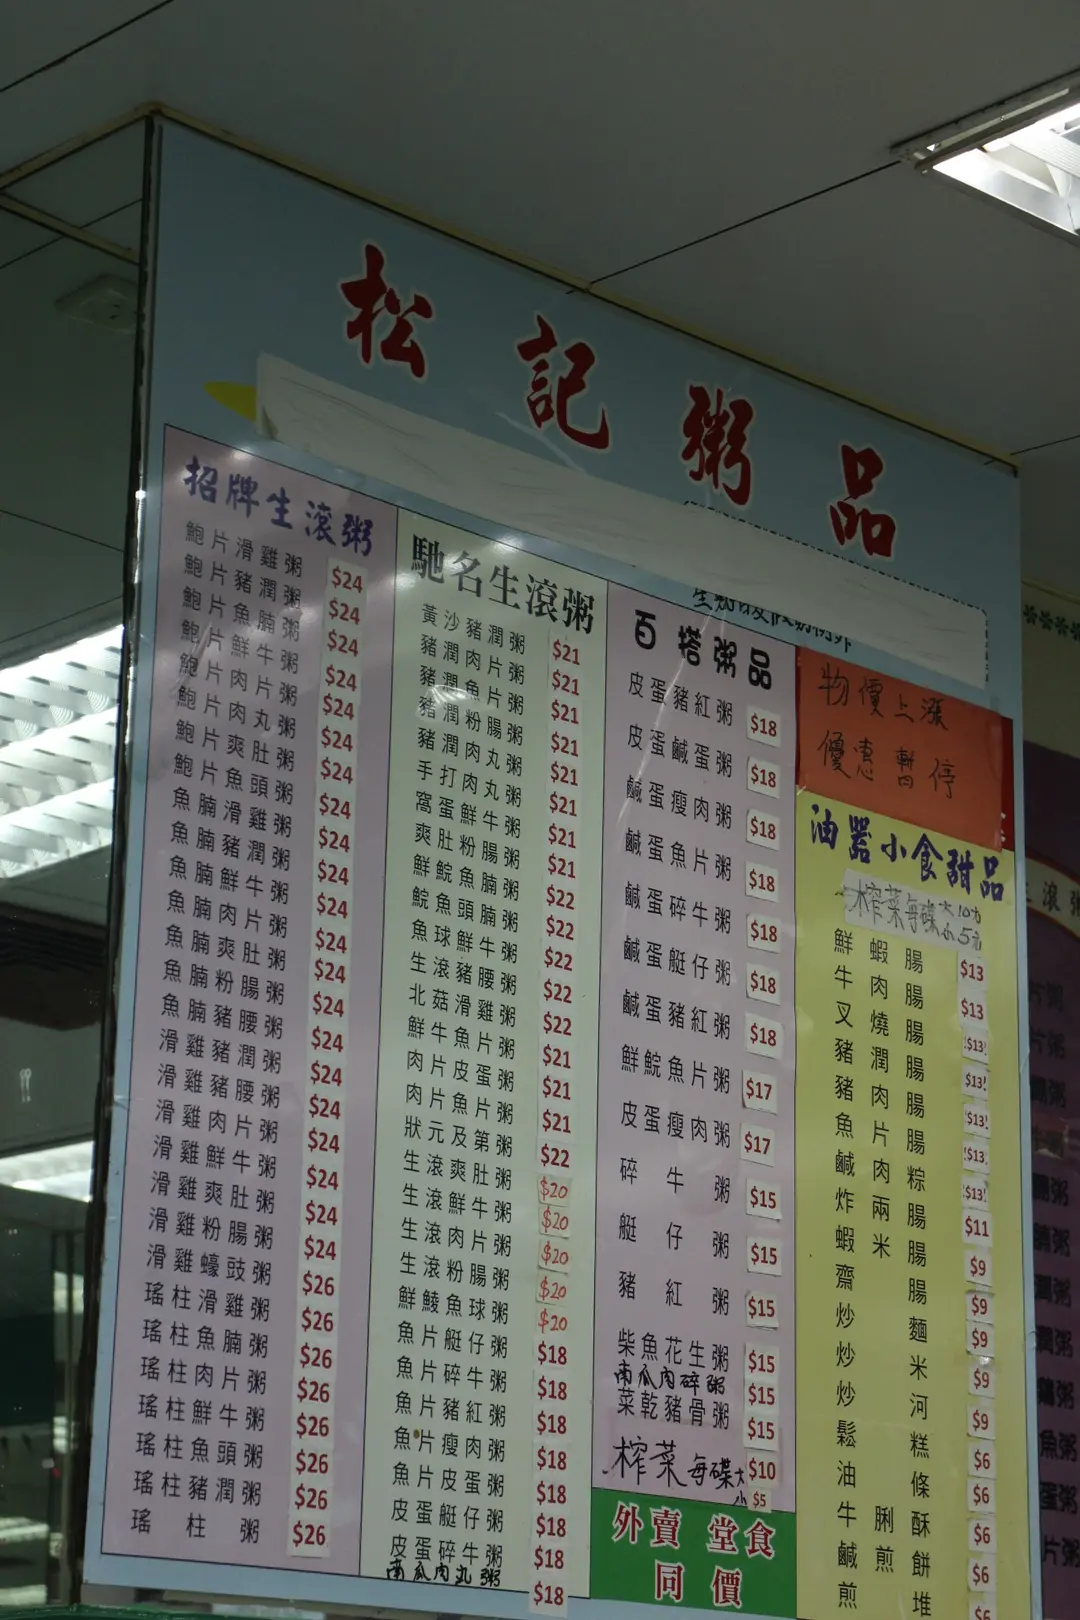 松記粥品
招牌生滾粥
鮑片滑雞粥 $24
鮑片豬潤粥 $24
鮑片魚腩粥 $24
鮑片鮮牛粥 $24
鮑片肉片粥 $24
鮑片肉丸粥 $24
鮑片爽肚粥 $24
鮑片魚頭粥 $24
魚腩滑雞粥 $24
魚腩豬潤粥 $24
魚腩鮮牛粥 $24
魚腩肉片粥 $24
魚腩爽肚粥 $24
魚腩粉腸粥 $24
魚腩豬腰粥 $24
滑雞豬潤粥 $24
滑雞豬腰粥 $24
滑雞肉片粥 $24
滑雞鮮牛粥 $24
滑雞爽肚粥 $24
滑雞粉腸粥 $24
滑雞蠔豉粥 $26
瑤柱滑雞粥 $26
瑤柱魚腩粥 $26
瑤柱肉片粥 $26
瑤柱鮮牛粥 $26
瑤柱魚頭粥 $26
瑤柱豬潤粥 $26
瑤柱粥 $26
馳名生滾粥
黃沙豬潤粥 $21
豬潤肉片粥 $21
豬潤魚片粥 $21
豬潤粉腸粥 $21
豬潤肉丸粥 $21
手打肉丸粥 $21
窩蛋鮮牛粥 $21
爽肚粉腸粥 $21
鮮鯇魚腩粥 $22
鯇魚頭腩粥 $22
魚球鮮牛粥 $22
生滾豬腰粥 $22
北菇滑雞粥 $22
鮮牛魚片粥 $21
肉片皮蛋粥 $21
肉片魚片粥 $21
狀元及第粥 $22
生滾爽肚粥 $20
生滾鮮牛粥 $20
生滾肉片粥 $20
生滾粉腸粥 $20
鮮鯪魚球粥 $20
魚片艇仔粥 $18
魚片碎牛粥 $18
魚片豬紅粥 $18
魚片瘦肉粥 $18
魚片皮蛋粥 $18
皮蛋艇仔粥 $18
皮蛋碎牛粥 $18
南瓜肉丸粥 $18
百搭粥品
皮蛋豬紅粥 $18
皮蛋鹹蛋粥 $18
鹹蛋瘦肉粥 $18
鹹蛋魚片粥 $18
鹹蛋碎牛粥 $18
鹹蛋艇仔粥 $18
鹹蛋豬紅粥 $18
鮮鯇魚片粥 $17
皮蛋瘦肉粥 $17
碎牛粥 $15
艇仔粥 $15
豬紅粥 $15
柴魚花生粥 $15
南瓜肉碎粥 $15
菜乾豬骨粥 $15
榨菜每碟大 $10
小 $5
外賣 堂食
同價
物價上漲
優惠暫停
油器小食甜品
榨菜每碟大10元
小5元
鮮蝦腸 $13
牛肉腸 $13
叉燒腸 $13
豬潤腸 $13
豬肉腸 $13
魚片腸 $13
鹹肉粽 $13
炸兩腸 $11
蝦米腸 $9
齋腸 $9
炒麵 $9
炒米 $9
炒河 $9
鬆糕 $6
油條 $6
牛脷酥 $6
鹹煎餅 $6
煎堆 $6